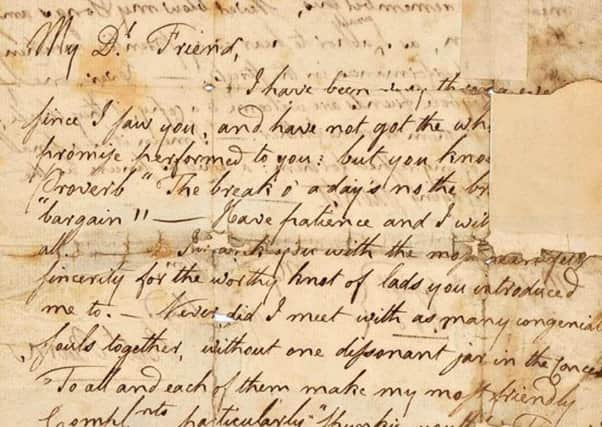 My Dr. Friend,
I have been very throng ever
since I saw you, and have not got the wh
promise performed to you: but you kno
Proverb "The break o' a day's no the br
"bargain" — Have patience and I wil
all. — I thank you with the most
sincerity for the worthy knot of lads you introduced
me to. — Never did I meet with as many congenial
souls together, without one dissonant jar in the Conce
To all and each of them make my most friendly
Complnts particularly "Spunkie youth"